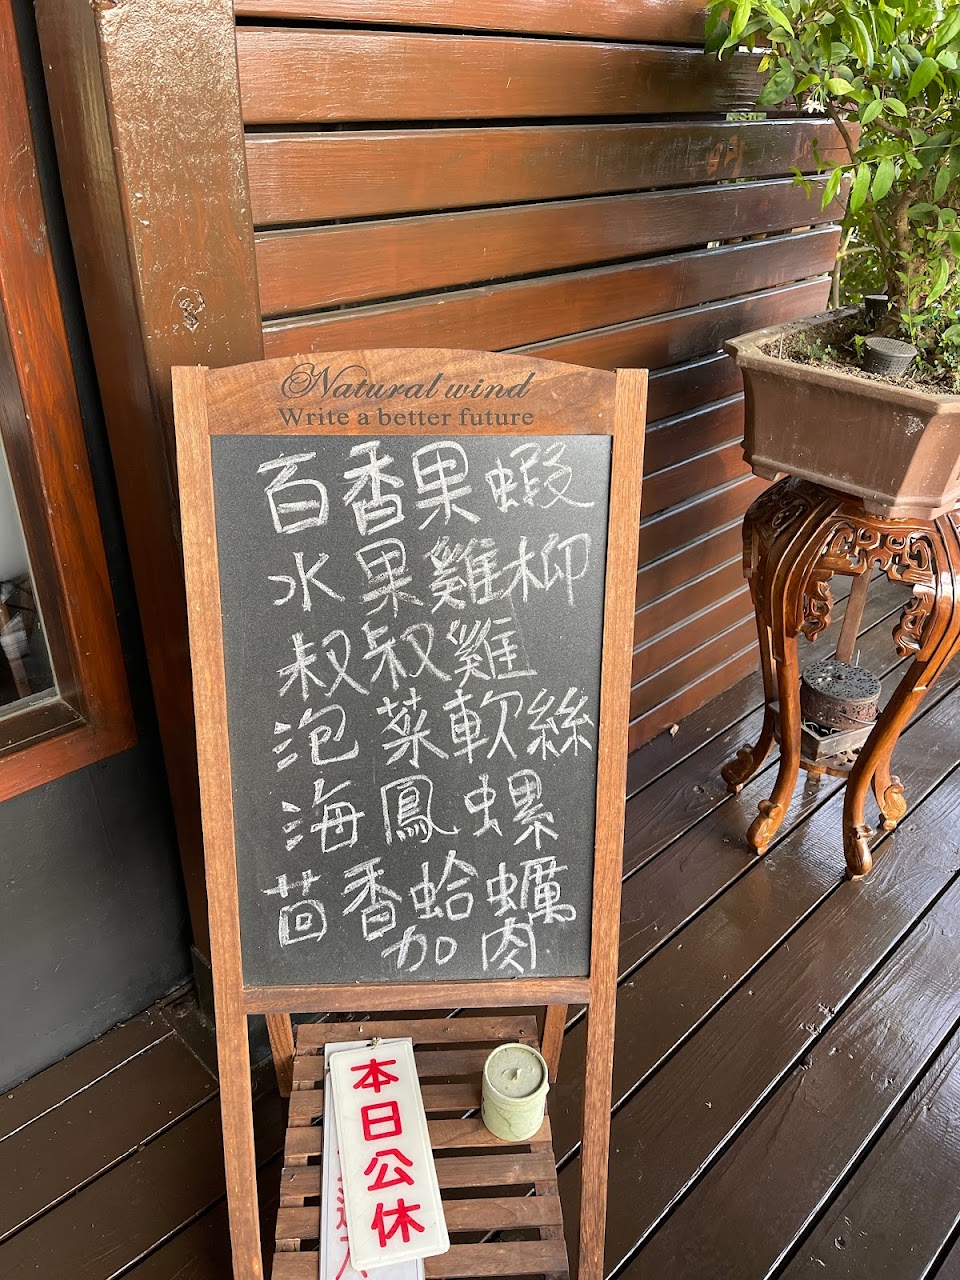 Natural wind
Write a better future
百香果蝦
水果雞柳
叔叔雞
泡菜軟絲
海鳳螺
茴香蛤蠣
加肉
本日公休